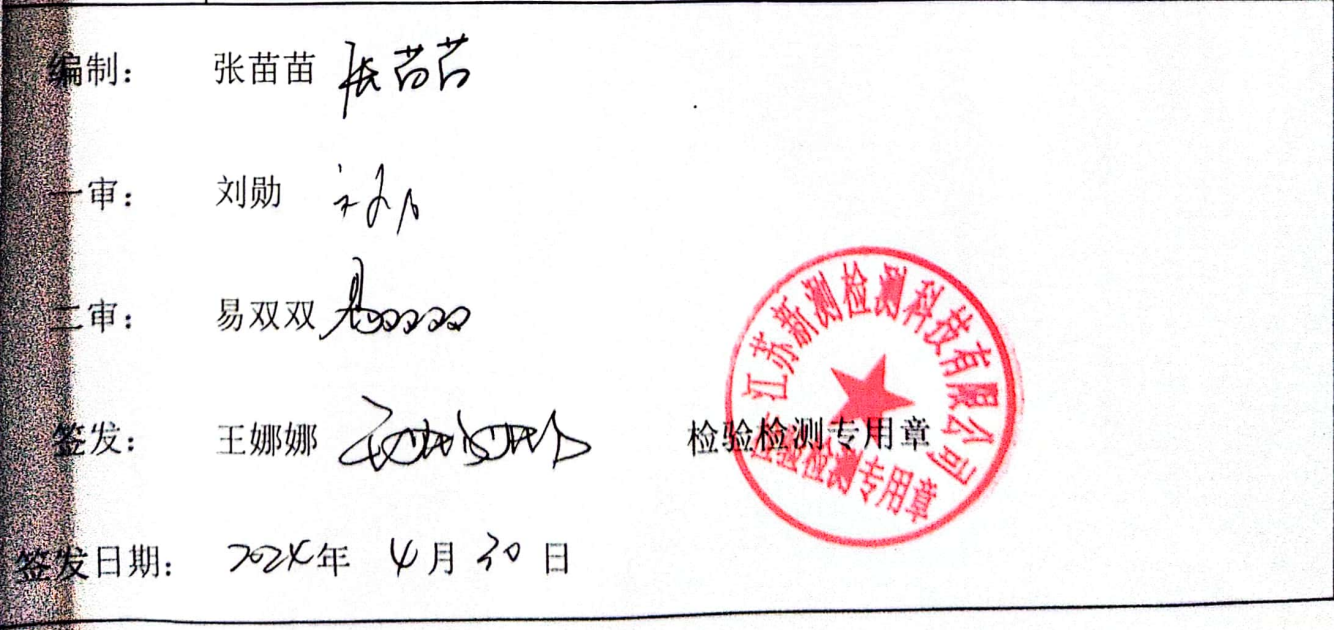 编制： 张苗苗 张苗苗
一审： 刘勋
二审： 易双双 易双双
签发： 王娜娜
检验检测专用章
江苏新测检测科技有限公司
检验检测专用章
签发日期： 2024年 4月30日